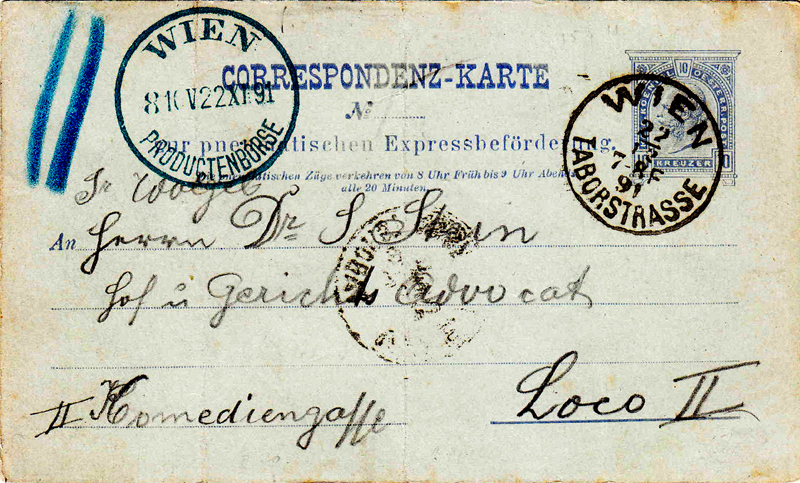 WIEN
810V22XII91
PRODUCTENBÖRSE
CORRESPONDENZ-KARTE
No
zur pneumatischen Expressbeförderung.
Die pneumatischen Züge verkehren von 8 Uhr Früh bis 9 Uhr Abends
alle 20 Minuten.
10 KREUZER
WIEN
22
91
TABORSTRASSE
An Herrn Dr S. Stern
Hof u Gerichts Advocat
II Komediengasse
Loco II